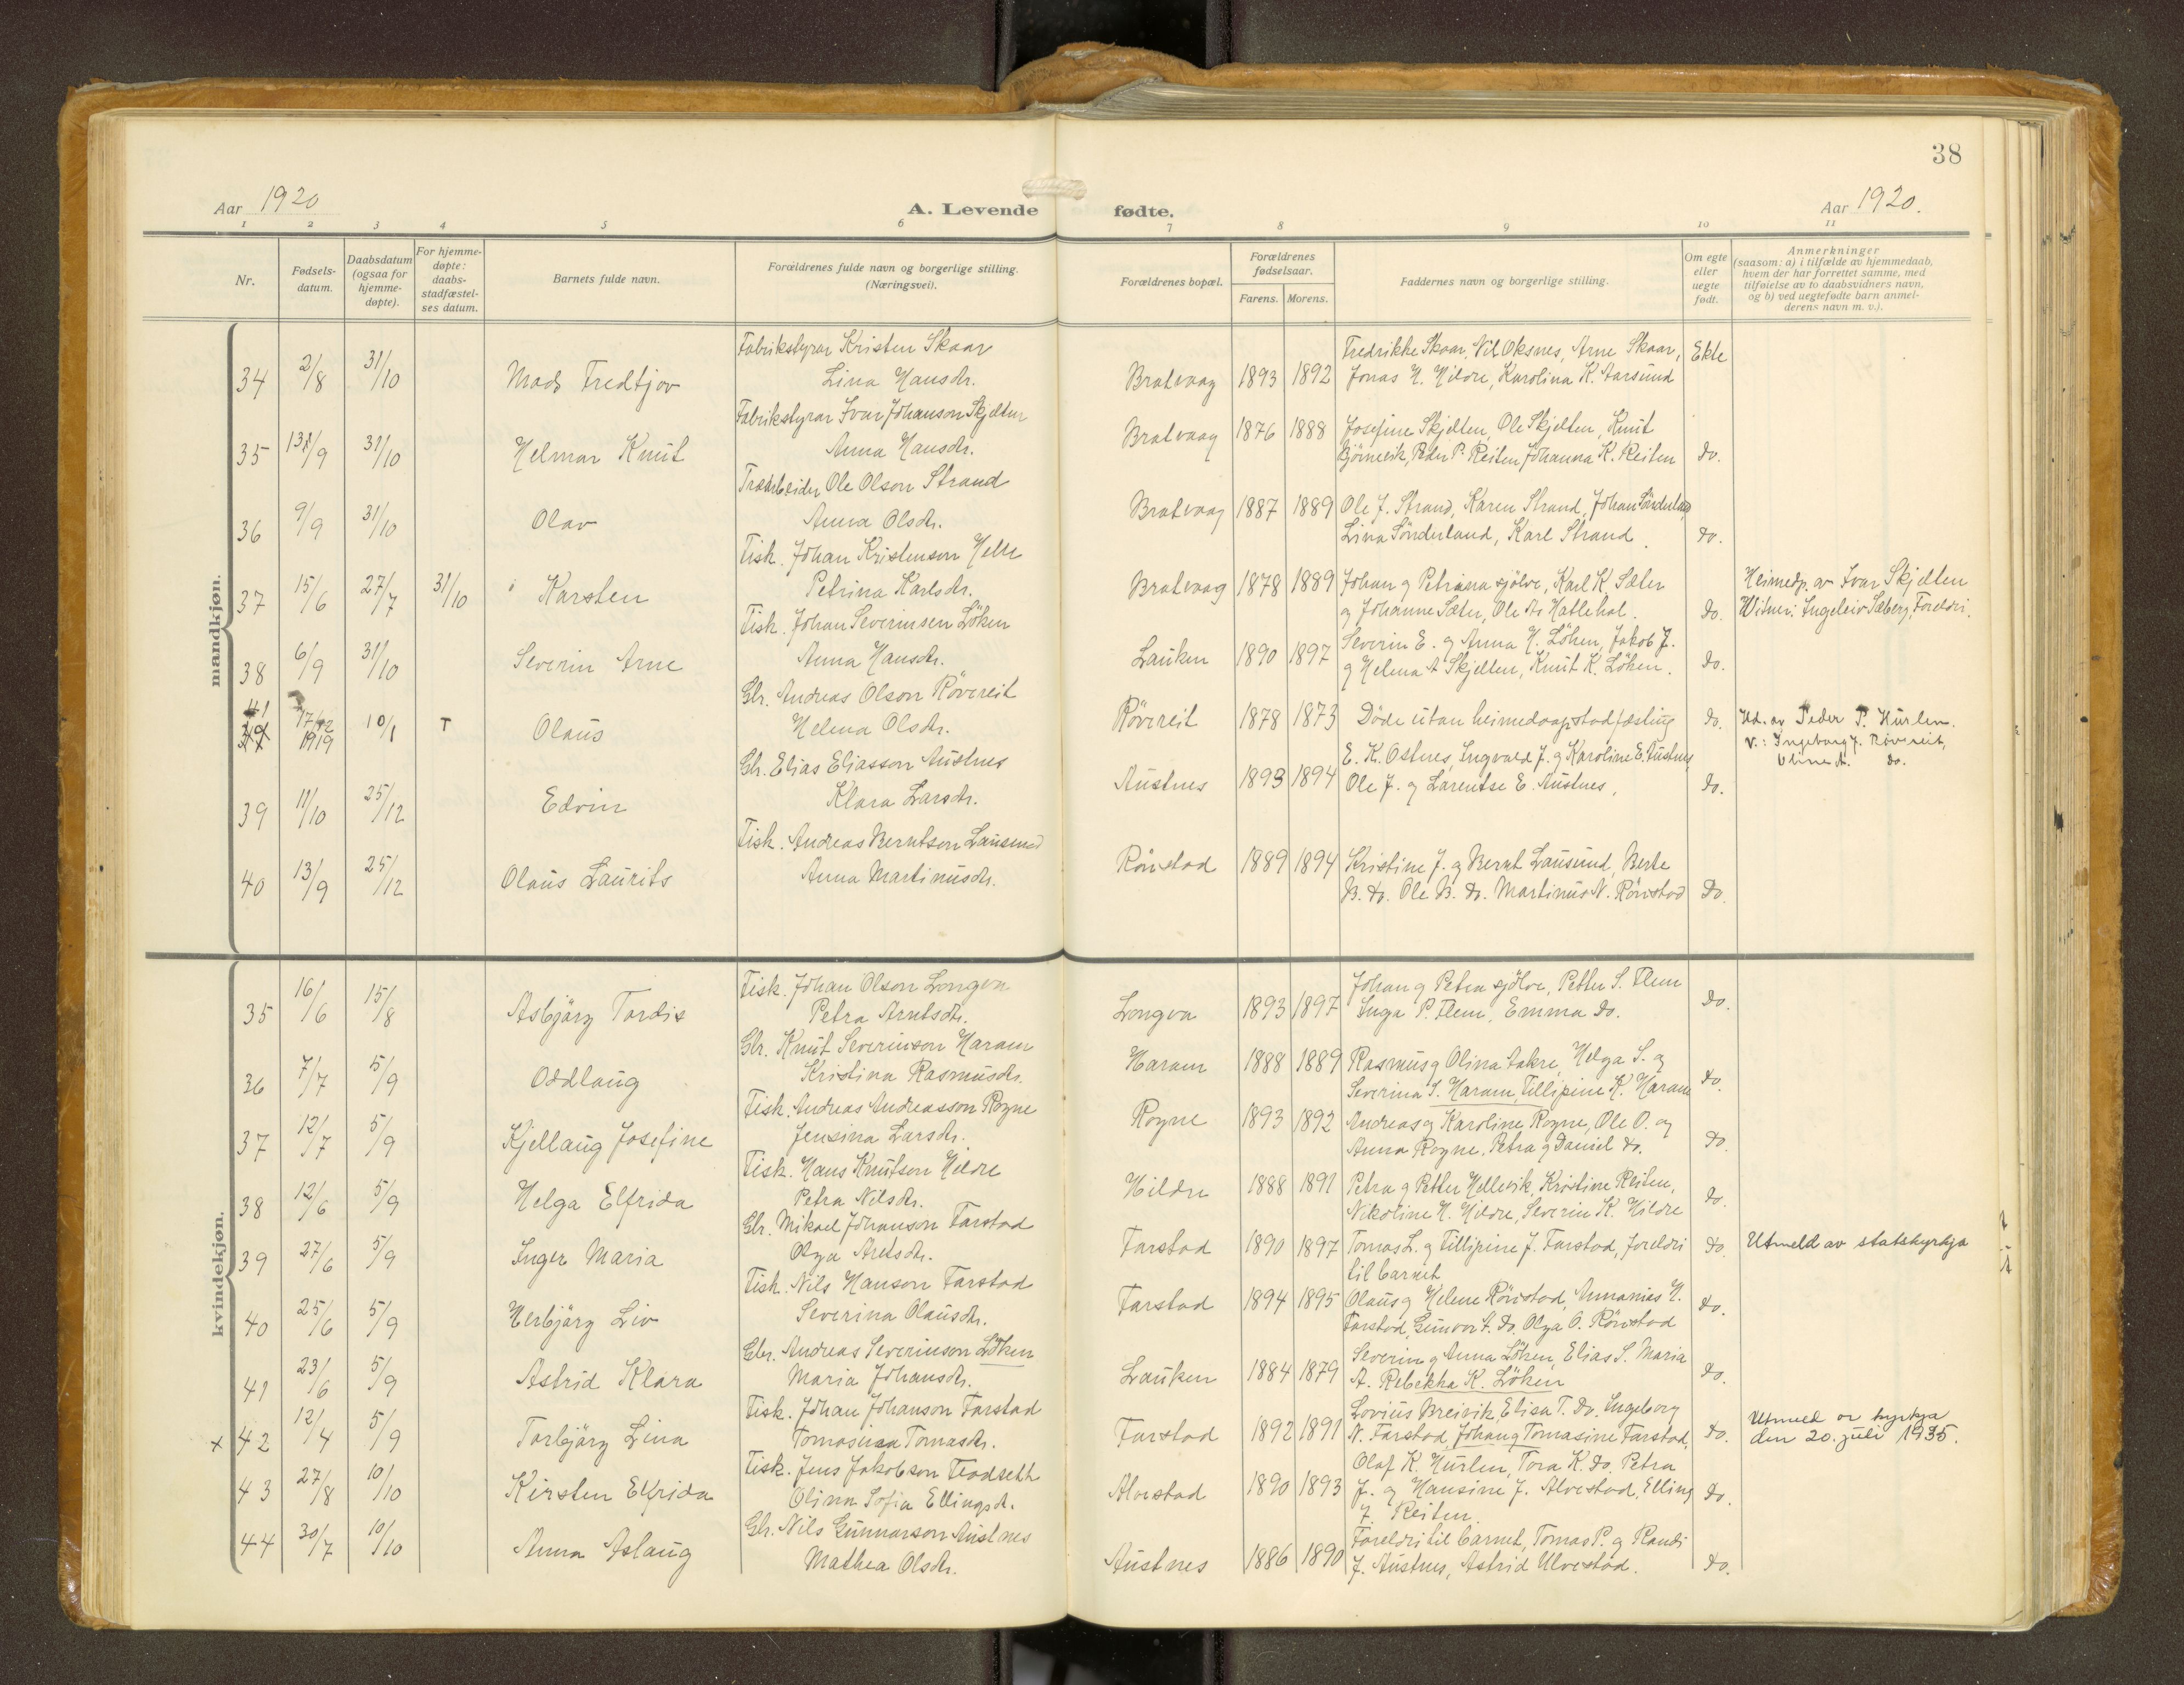 38
Aar 1920
A. Levende fødte.
Aar 1920.
1 2 3 4 5 6 7 8 9 10 11
Nr.
Fødsels-
datum.
Daabsdatum
(ogsaa for
hjemme-
døpte).
For hjemme-
døpte:
daabs-
stadfæstel-
ses datum.
Barnets fulde navn.
Forældrenes fulde navn og borgerlige stilling.
(Næringsvei).
Forældrenes bopæl.
Forældrenes
fødselsaar.
Farens. Morens.
Faddernes navn og borgerlige stilling.
Om egte
eller
uegte
født.
Anmerkninger
(saasom: a) i tilfælde av hjemmedaab,
hvem der har forrettet samme, med
tilføielse av to daabsvidners navn,
og b) ved uegtefødte barn anmel-
derens navn m. v.).
mandkjøn.
Fabrikstyrar Kristen Skaar
Fredrikke Skaar, Nil Oksnes, Arne Skaar, Ekte
34 2/8 31/10 Mads Fredtjov Lina Hansdr. Bratvaag 1893 1892 Jonas N. Hildre, Karolina K. Aarsund
Fabrikstyrar Ivar Johanson Skjelten
Bratvaag 1876 1888 Josefine Skjelten, Ole Skjelten, Knut
35 13/9 31/10 Helmar Knut Anna Hansdr. Bjørnevik, Peder P. Reiten Johanna K. Reiten do.
Træarbeider Ole Olson Strand
Bratvaag 1887 1889 Ole J. Strand, Karen Strand, Johan Sönderland
36 9/9 31/10 Olav Anna Olsdr. Lina Sönderland, Karl Strand. do.
Fisk. Johan Kristenson Helle
Bratvaag 1878 1889 Johan og Petrina sjölve, Karl K. Sæter Heimedp. av Ivar Skjelten
37 15/6 27/7 31/10 Karsten Petrina Karlsdr. og Johanne Sæter, Ole A. Hatlehol. do. Witner: Ingeleiv Sæberg, Foreldri.
Fisk. Johan Severinsen Löken
Lauken 1890 1897 Severin E. og Anna H. Löken, Jakob J.
38 6/9 31/10 Severin Arne Anna Hansdr. og Helena A Skjelten, Knut K. Löken. do.
Gbr. Andreas Olson Rövereit
41 17/12 1919 10/1 T Olaus Helena Olsdr. Rövereit 1878 1873 Döde utan heimedaapstadfæsting do. Hd. av Peder P. Hurlen.
V.: Ingeborg J. Rövereit,
Oline A. do.
Gbr. Elias Eliasson Austnes
E. K. Ostnes, Ingvald J. og Karoline E. Austnes
39 11/10 25/12 Edvin Klara Larsdr. Austnes 1893 1894 Ole J. og Larentse E. Austnes, do.
Fisk. Andreas Berntson Lausund
Rönstad 1889 1894 Kristine J. og Bernt Lausund, Berte
40 13/9 25/12 Olaus Laurits Anna Martinusdr. B. do. Ole B. do. Martinus N. Rönstad do.
kvindekjøn.
Fisk. Johan Olson Longva
Johan og Petra sjölve, Petter S. Flem
35 16/6 15/8 Asbjörg Tordis Petra Arntsdr. Longva 1893 1897 Inga P. Flem, Emma do. do.
Gbr. Knut Severinson Haram
Haram 1888 1889 Rasmus og Olina Aakre, Helga S. og
36 7/7 5/9 Oddlaug Kristina Rasmusdr. Severina S. Haram, Fillipine K. Haram do.
Fisk. Andreas Andreasson Rogne
Rogne 1893 1892 Andreas og Karoline Rogne, Ole O. og
37 12/7 5/9 Kjellaug Josefine Jensina Larsdr. Anna Rogne, Petra og Daniel do. do.
Fisk. Hans Knutson Hildre
Hildre 1888 1891 Petra og Petter Hellevik, Kristine Reiten,
38 12/6 5/9 Helga Elfrida Petra Nilsdr. Nikoline N. Hildre, Severin K. Hildre do.
Gbr. Mikael Johanson Farstad
39 27/6 5/9 Inger Maria Olga Aretsdr. Farstad 1890 1897 Tomas L. og Fillipine J. Farstad, foreldri do. Utmeld av statskyrkja
til barnet
Fisk. Nils Hanson Farstad
Farstad 1894 1895 Olaus og Helene Rönstad, Annanias N.
40 25/6 5/9 Herbjörg Liv Severina Olausdr. Farstad, Gunvor A. do. Olga O. Rönstad do.
Gbr. Andreas Severinson Löken
Severin og Anna Löken, Elias S. Maria
41 23/6 5/9 Astrid Klara Maria Johansdr. Lauken 1884 1879 A. Rebekka K. Löken do.
Fisk. Johan Johanson Farstad
Lovius Breivik, Elisa T. do. Ingeborg
x 42 12/4 5/9 Torbjörg Lina Tomasina Tomasdr. Farstad 1892 1891 N. Farstad, Johan og Tomasine Farstad, do. Utmeld or kyrkja
den 20. juli 1935.
Fisk. Jens Jakobson Tradseth
Olaf K. Hurlen, Tora K. do. Petra
43 27/8 10/10 Kirsten Elfrida Olina Sofia Ellingsdr. Alvestad 1890 1893 J. og Hansine J. Alvestad, Elling do.
J. Reiten.
Gbr. Nils Gunnarson Austnes
Foreldri til barnet, Tomas P. og Randi
44 30/7 10/10 Anna Aslaug Mathea Olsdr. Austnes 1886 1890 J. Austnes, Astrid Ulvestad. do.